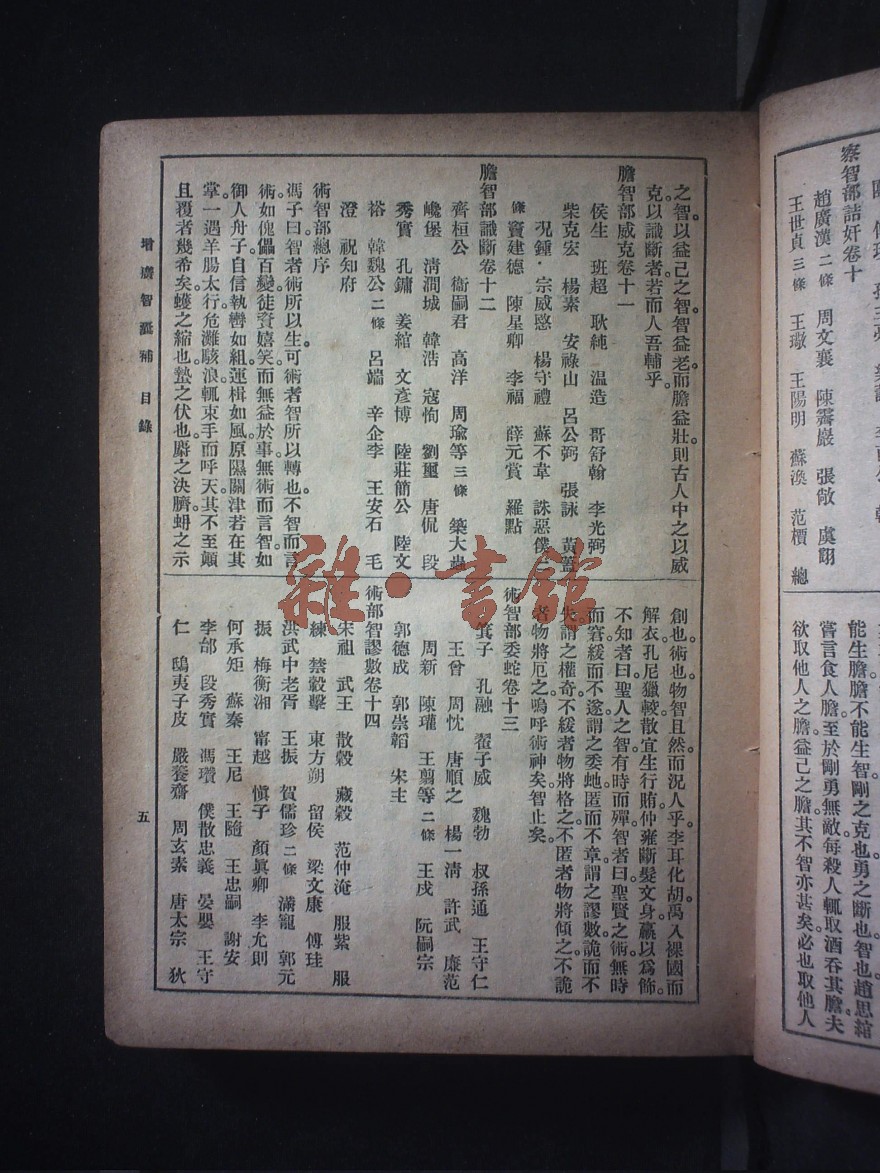 王世貞 三條 王璥 王陽明 蘇渙 范檟 總
趙廣漢 二條 周文襄 陳霽巖 張敞 虞詡
察智部詰奸卷十
能生膽膽不能生智剛之克也勇之斷也智也趙思綰
嘗言食人膽至於剛勇無敵每殺人輒取酒吞其膽夫
欲取他人之膽益己之膽其不智亦甚矣必也取他人
之智以益己之智智益老而膽益壯則古人中之以威
克以識斷者若而人吾輔乎
膽智部威克卷十一
侯生 班超 耿純 温造 哥舒翰 李光弼
柴克宏 楊素 安祿山 呂公弼 張詠 黃蓋
況鍾 宗威愍 楊守禮 蘇不韋 誅惡僕
條 竇建德 陳星卿 李福 薛元賞 羅點
膽智部識斷卷十二
齊桓公 衞嗣君 高洋 周瑜等 三條 築大蟲
巉堡 清澗城 韓浩 寇恂 劉璽 唐侃 段
秀實 孔鏞 姜綰 文彥博 陸莊簡公 陸文
裕 韓魏公 二條 呂端 辛企李 王安石 毛
澄 祝知府
術智部總序
馮子曰智者術所以生可術者智所以轉也不智而言
術如傀儡百變徒資嬉笑而無益於事無術而言智如
御人舟子自信執轡如組運楫如風原隰關津若在其
掌一遇羊腸太行危灘駭浪輒束手而呼天其不至顛
且覆者幾希矣蠖之縮也蟄之伏也麝之決臍蚺之示
創也術也物智且然而況人乎李耳化胡禹入裸國而
解衣孔尼獵較散宜生行賄仲雍斷髮文身臝以為飾
不知者曰聖人之智有時而殫智者曰聖賢之術無時
而窘緩而不遂謂之委虵匿而不章謂之謬數詭而不
失謂之權奇不緩者物將格之不匿者物將傾之不詭
者物將厄之嗚呼術神矣智止矣
術智部委蛇卷十三
箕子 孔融 翟子威 魏勃 叔孫通 王守仁
王曾 周忱 唐順之 楊一清 許武 廉范
周新 陳瓘 王翦等 二條 王戍 阮嗣宗
郭德成 郭崇韜 宋主
術部智謬數卷十四
宋祖 武王 散穀 藏穀 范仲淹 服紫 服
練 禁轂擊 東方朔 留侯 梁文康 傅珪
洪武中老胥 王振 賀儒珍 二條 滿寵 郭元
振 梅衡湘 甯越 愼子 顏眞卿 李允則
何承矩 蘇秦 王尼 王隨 王忠嗣 謝安
李郃 段秀實 馮瓚 僕散忠義 晏嬰 王守
仁 鴟夷子皮 嚴養齋 周玄素 唐太宗 狄
增廣智囊補 目錄
五
雜·書館